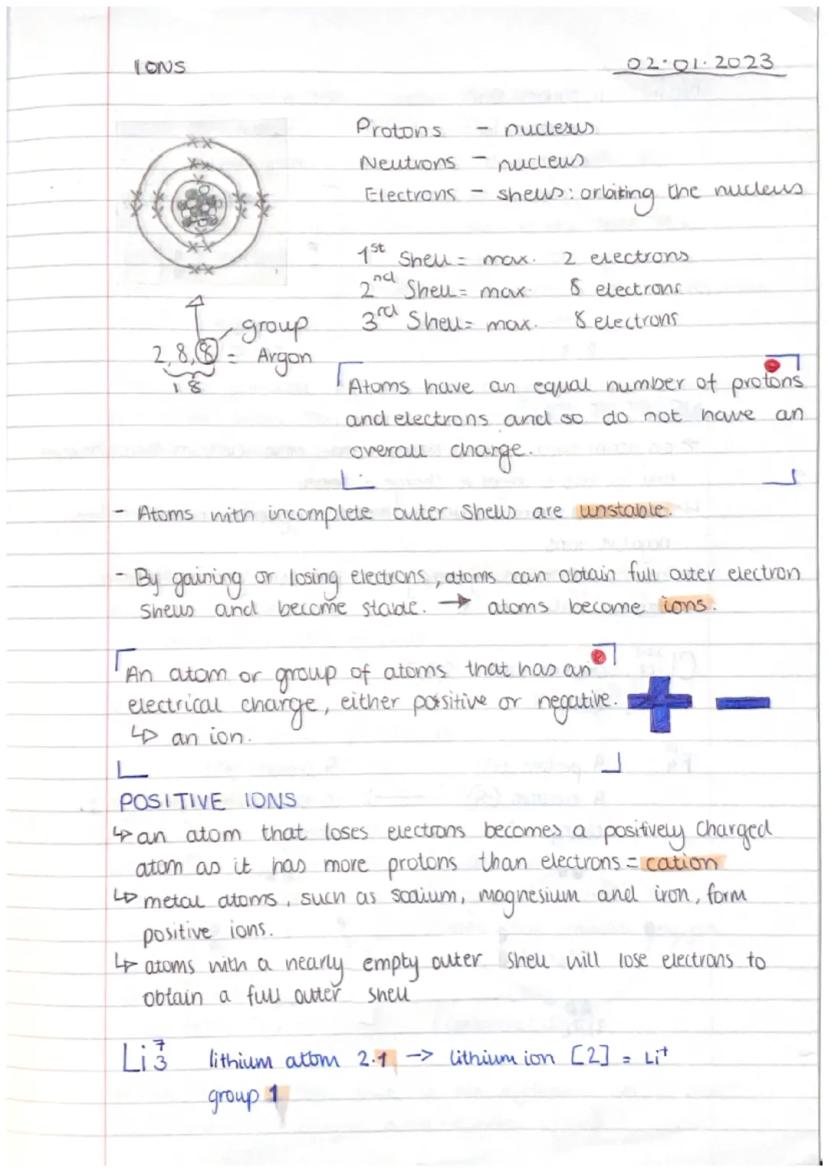 IONS
02.01.2023
Protons - nucleus
Neutrons - nucleus
Electrons - shells: orbiting the nucleus
1st Shell = max. 2 electrons
2nd Shell = max. 8 electrons
3rd Shell = max. 8 electrons
group
2,8,8 = Argon
18
Atoms have an equal number of protons
and electrons and so do not have an
overall charge.
- Atoms with incomplete outer shells are unstable.
- By gaining or losing electrons, atoms can obtain full outer electron
shells and become stable. → atoms become ions.
An atom or group of atoms that has an
electrical charge, either positive or negative.
↳ an ion.
+ -
POSITIVE IONS
↳ an atom that loses electrons becomes a positively charged
atom as it has more protons than electrons = cation
↳ metal atoms, such as sodium, magnesium and iron, form
positive ions.
↳ atoms with a nearly empty outer shell will lose electrons to
obtain a full outer shell
Li 7 3 lithium atom 2.1 -> lithium ion [2] = Li+
group 1